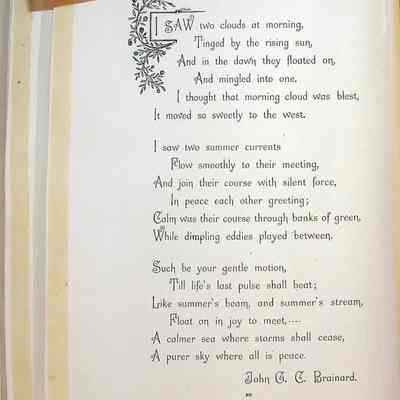 I SAW two clouds at morning,
Tinged by the rising sun,
And in the dawn they floated on,
And mingled into one.
I thought that morning cloud was blest,
It moved so sweetly to the west.
I saw two summer currents
Flow smoothly to their meeting,
And join their course with silent force,
In peace each other greeting;
Calm was their course through banks of green,
While dimpling eddies played between.
Such be your gentle motion,
Till life's last pulse shall beat;
Like summer's beam, and summer's stream,
Float on in joy to meet,----
A calmer sea where storms shall cease,
A purer sky where all is peace.
John G. C. Brainard.